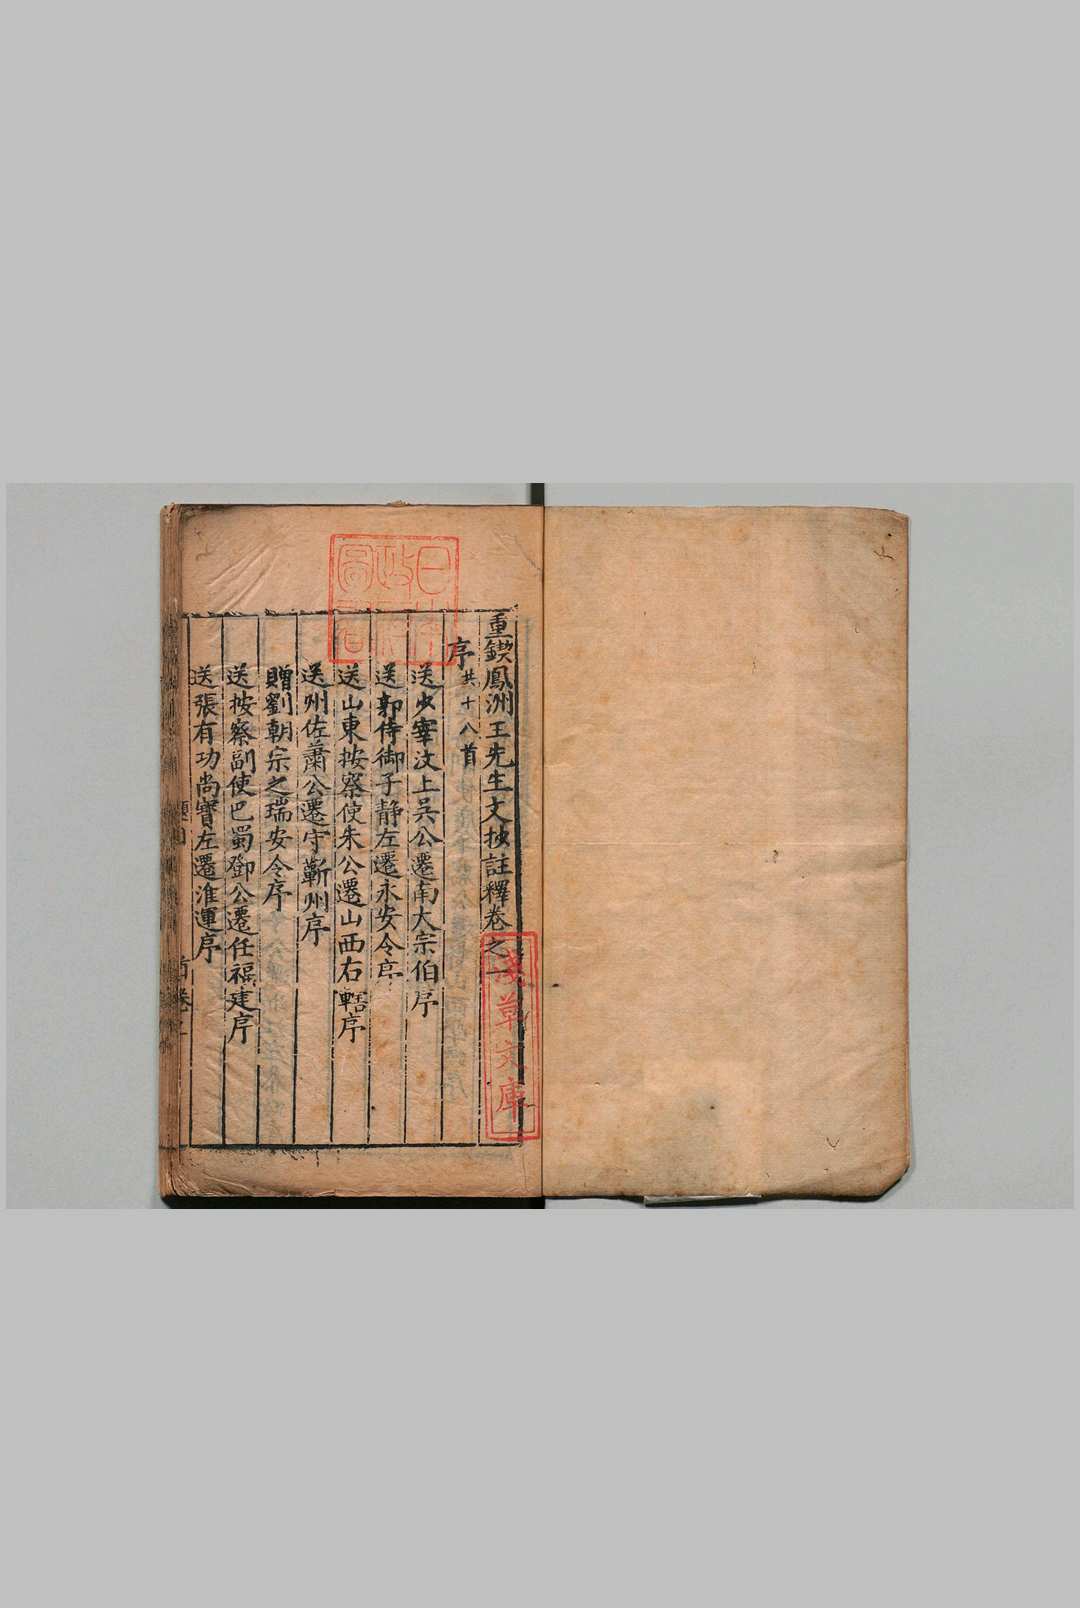 重鍥鳳洲王先生文抄註釋卷之一
序 共十八首
送少宰汶上吳公遷南大宗伯序
送郭侍御子靜左遷永安令序
送山東按察使朱公遷山西右轄序
送州佐蕭公遷守蘄州序
贈劉朝宗之瑞安令序
送按察副使巴蜀鄧公遷任福建序
送張有功尚寶左遷淮運序
淺草文庫
日本
政府
圖書